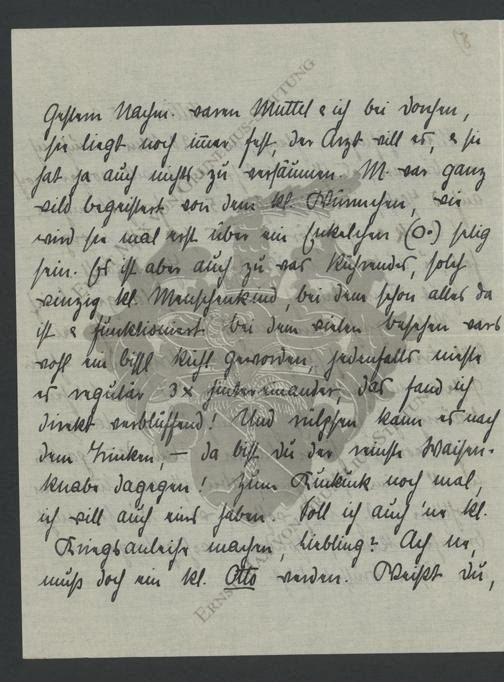 8
Gestern Nachm. waren Muttel & ich bei Dorchen,
sie liegt noch im̅er fest, der Arzt will es, & sie
hat ja auch nichts zu versäumen. M. war ganz
wild begeistert von dem kl. Würmchen, wie
wird sie mal erst über ein Enkelchen (O.) selig
sein. Es ist aber auch zu was Rührendes, solch
winzig kl. Menschenkind, bei dem schon alles da
ist & funktioniert. Bei dem vielen besehen wars
wohl ein bissl kühl geworden, jedenfalls nieste
es regulär 3x hintereinander, das fand ich
direkt verblüffend! Und rülpsen kann es nach
dem Trinken, – da bist du der reinste Waisen-
knabe dagegen! Zum Kuckuck noch mal,
ich will auch eins haben. Soll ich auch 'ne kl.
Kriegsanleihe machen, Liebling? Ach ne,
muß doch ein kl. Otto werden. Weißt Du,